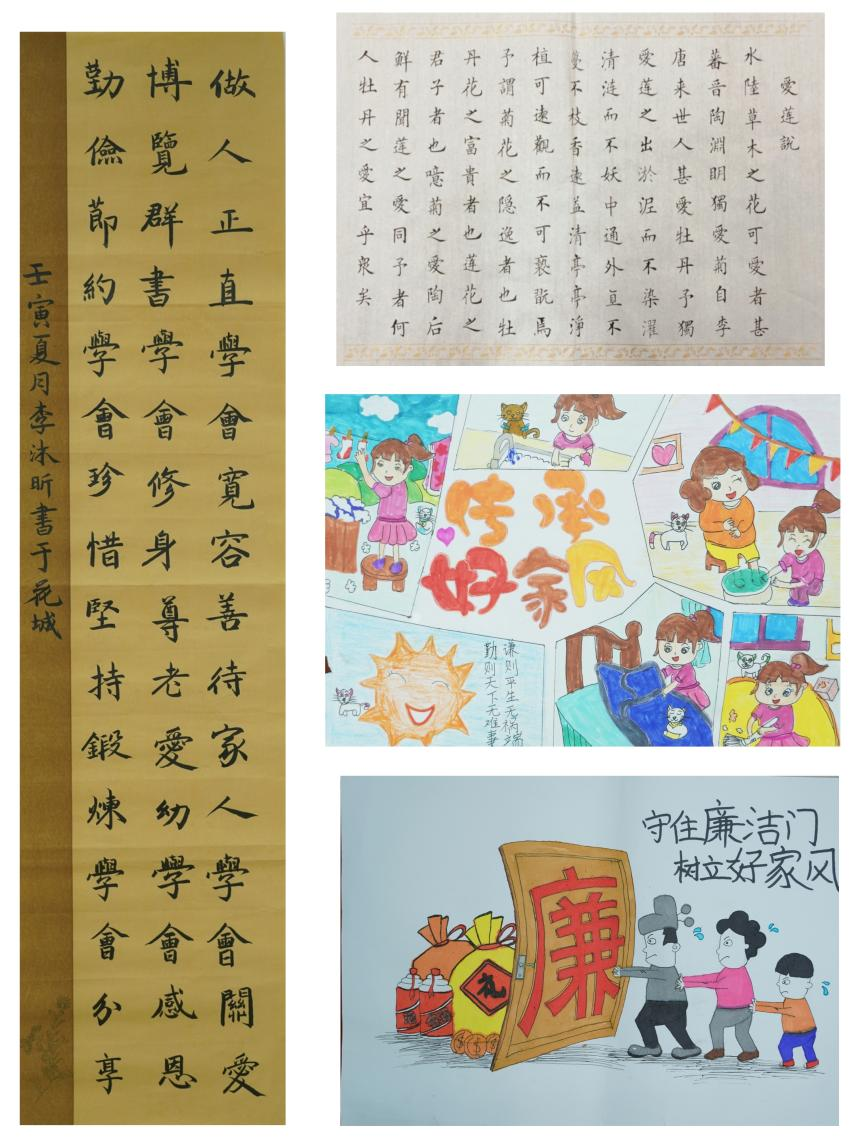 做人正直學會寬容善待家人學會關愛
博覽群書學會修身尊老愛幼學會感恩
勤儉節約學會珍惜堅持鍛煉學會分享
壬寅夏月李沐昕書于花城
愛蓮説
水陸草木之花可愛者甚
蕃晋陶淵明獨愛菊自李
唐来世人甚愛牡丹予獨
愛蓮之出淤泥而不染濯
清漣而不妖中通外直不
蔓不枝香遠益清亭亭淨
植可遠觀而不可亵翫焉
予謂菊花之隐逸者也牡
丹花之富貴者也蓮花之
君子者也噫菊之愛陶后
鮮有聞蓮之愛同予者何
人牡丹之愛宜乎衆矣
传承
好家风
谦则平生无祸端
勤则天下无难事
守住廉洁门
树立好家风
廉
礼